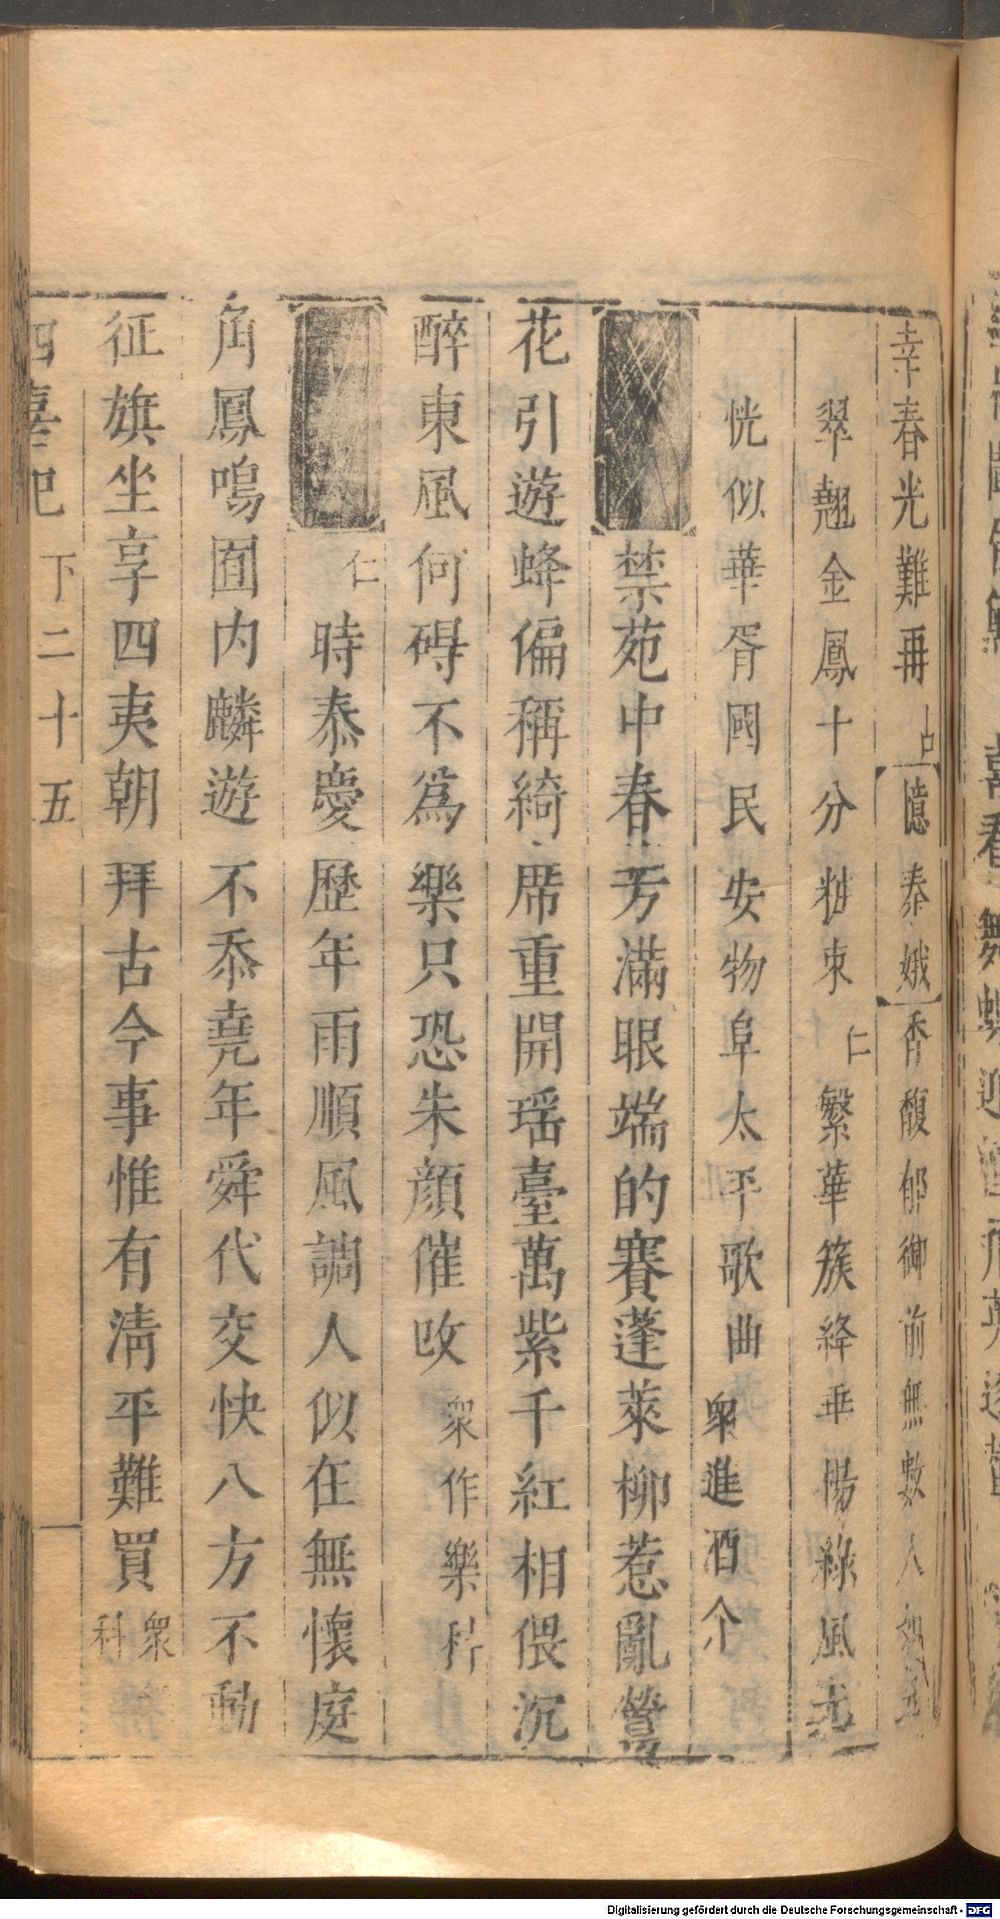 幸春光難再 占 憶秦娥 香馥郁御前無數人
翠翹金鳳十分粧束 仁 繁華簇絳垂楊綠風光
恍似華胥國民安物阜太平歌曲 衆進酒个
禁苑中春芳滿眼端的賽蓬萊柳惹亂鶯
花引遊蜂偏稱綺席重開瑶臺萬紫千紅相偎沉
醉東風何碍不爲樂只恐朱顔催改 衆作樂科
仁 時泰慶歷年雨順風調人似在無懷庭
角鳳鳴囿内麟遊不忝堯年舜代交快八方不動
征旗坐享四夷朝拜古今事惟有清平難買 衆科
四喜記 下二十五
Digitalisierung gefördert durch die Deutsche Forschungsgemeinschaft - DFG